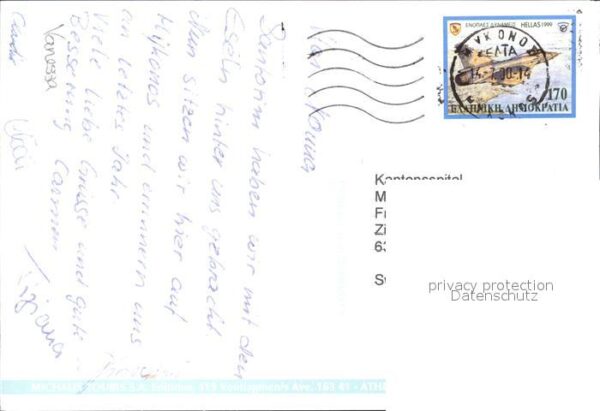 ΕΝΟΠΛΕΣ ΔΥΝΑΜΕΙΣ HELLAS 1999
ΜΥΚΟΝΟΣ
170
ΕΛΛΗΝΙΚΗ ΔΗΜΟΚΡΑΤΙΑ
Santorini haben wir mit den
Eseln hinter uns gebracht
Nun sitzen wir hier auf
Mykonos und erinnern uns
an letztes Jahr
Viele liebe Grüsse und gute
Besserung Carmen
Vanessa
Tiziana
Kantonsspital
M
Fr
Zi
6
Sw
privacy protection
Datenschutz
MICHALIS TOUBIS S.A. Editions, 519 Vouliagmenis Ave. 163 41 - ATHE